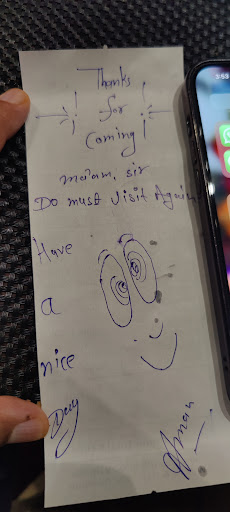 Thanks
for
Coming
madam, sir
Do must visit Again
Have
a
nice
Day
Aman